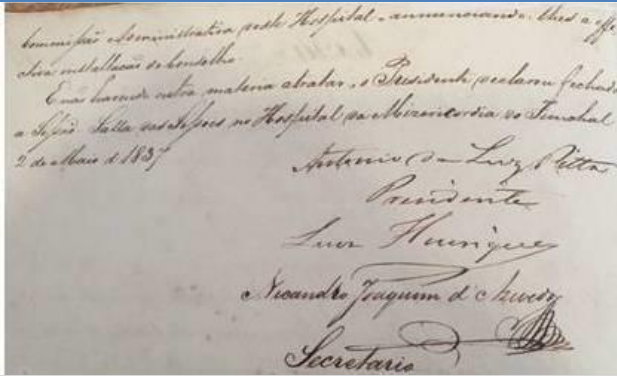 Commissão Administrativa deste Hospital, annunciando-lhes a effe-
ctiva installação do Conselho.
E não havendo outra materia a tratar, o Presidente declarou fechada
a Sessão. Salla das Sessões no Hospital da Mizericordia do Funchal
2 de Maio d 1837
Antonio da Luz Pitta
Presidente
Luiz Henriques
Nicandro Joaquim d'Azevedo
Secretario